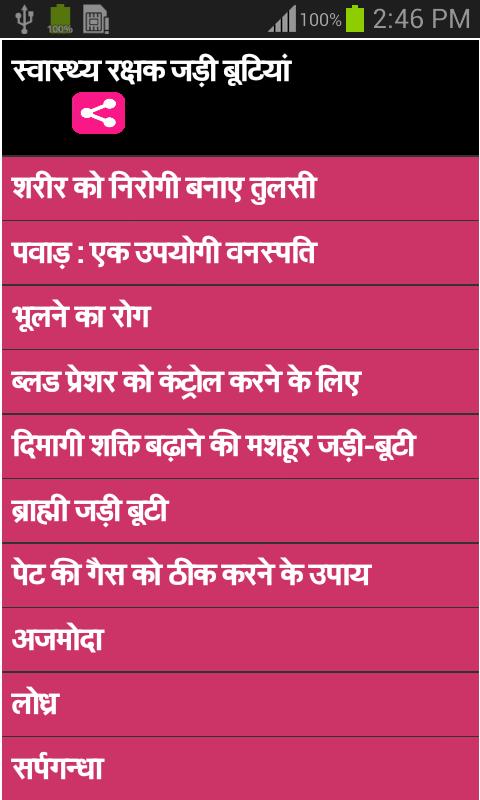 100% 100% 2:46 PM
स्वास्थ्य रक्षक जड़ी बूटियां
शरीर को निरोगी बनाए तुलसी
पवाड़ : एक उपयोगी वनस्पति
भूलने का रोग
ब्लड प्रेशर को कंट्रोल करने के लिए
दिमागी शक्ति बढ़ाने की मशहूर जड़ी-बूटी
ब्राह्मी जड़ी बूटी
पेट की गैस को ठीक करने के उपाय
अजमोदा
लोध्र
सर्पगन्धा